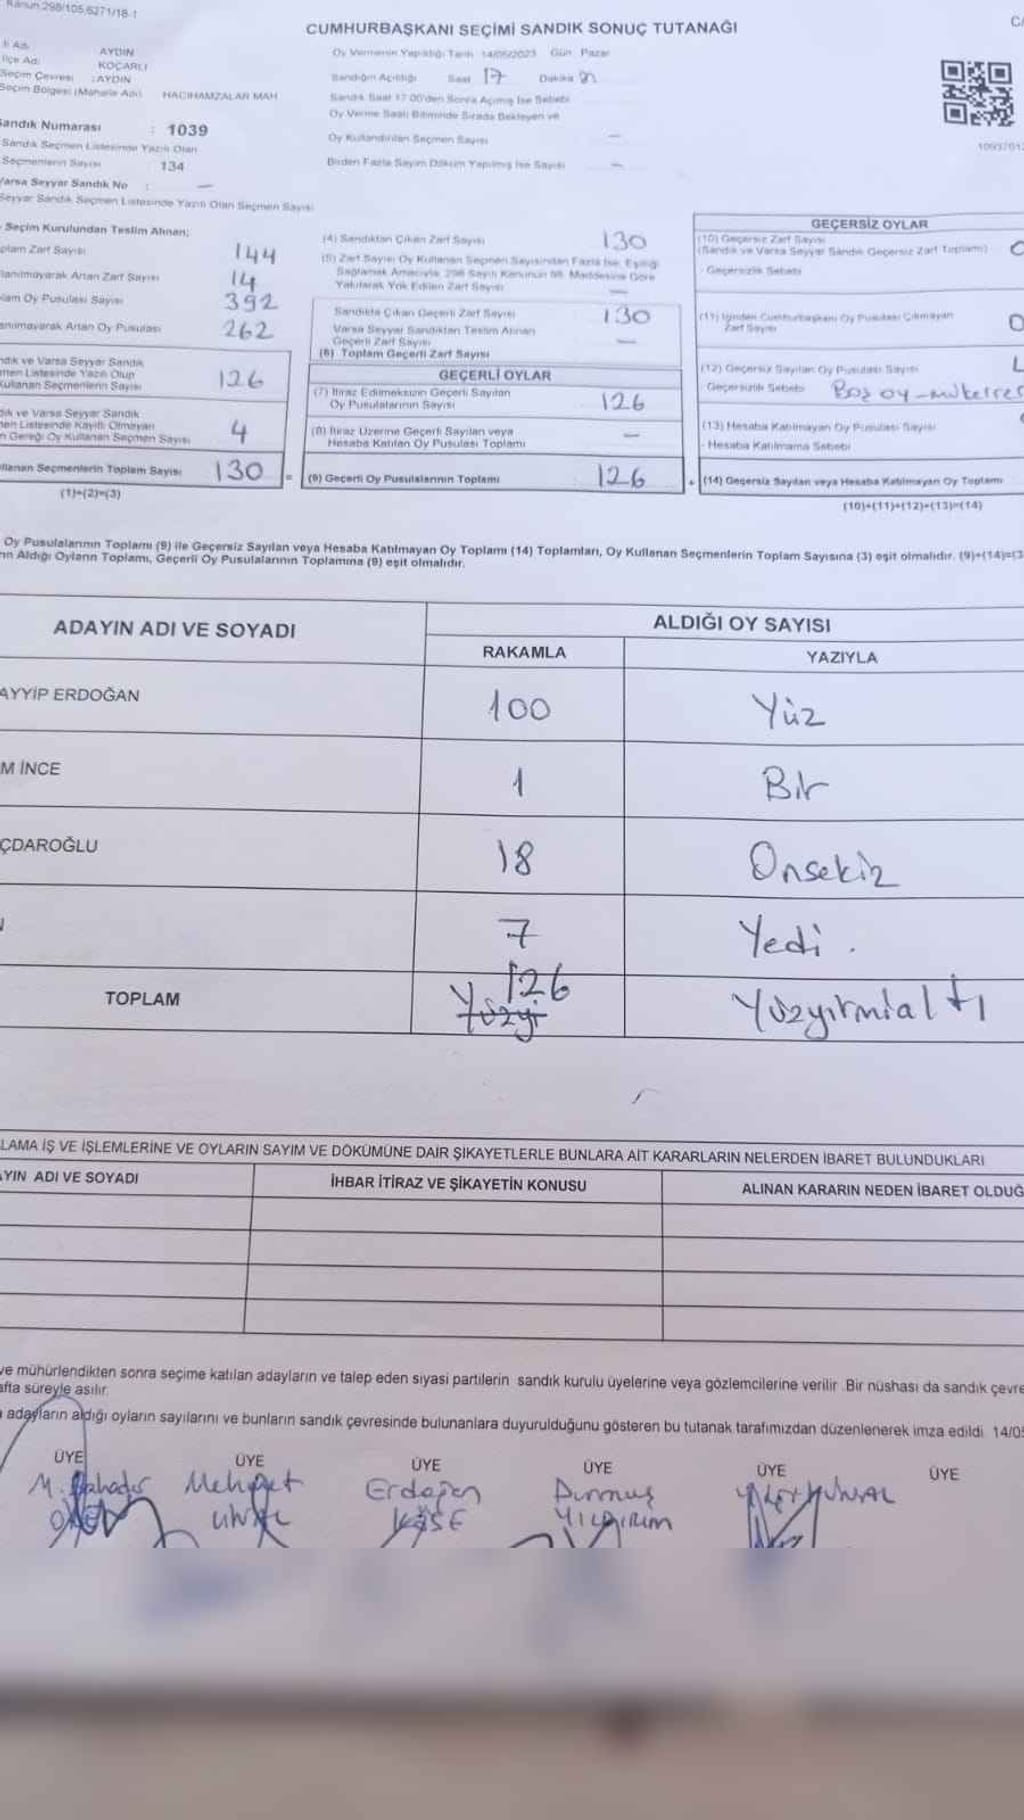 Kanun 298/105,6271/18-1
CUMHURBAŞKANI SEÇİMİ SANDIK SONUÇ TUTANAĞI
İli Adı AYDIN
İlçe Adı KOÇARLI
Seçim Çevresi : AYDIN
Seçim Bölgesi (Mahalle Adı) HACIHAMZALAR MAH
Sandık Numarası : 1039
Sandık Seçmen Listesinde Yazılı Olan
Seçmenlerin Sayısı 134
Varsa Seyyar Sandık No : —
Seyyar Sandık Seçmen Listesinde Yazılı Olan Seçmen Sayısı
Oy Vermenin Yapıldığı Tarih 14/05/2023 Gün Pazar
Sandığın Açıldığı Saat 17 Dakika
Sandık Saat 17:00'den Sonra Açılmış İse Sebebi
Oy Verme Saati Bitiminde Sırada Bekleyen ve
Oy Kullandırılan Seçmen Sayısı —
Birden Fazla Sayım Döküm Yapılmış İse Sayısı —
Seçim Kurulundan Teslim Alınan;
Zarf Sayısı 144
Artan Zarf Sayısı 14
Oy Pusulası Sayısı 392
Artan Oy Pusulası 262
ve Varsa Seyyar Sandık
Listesinde Yazılı Olup
Kullanan Seçmenlerin Sayısı 126
ve Varsa Seyyar Sandık
Listesinde Kayıtlı Olmayan
Gereği Oy Kullanan Seçmen Sayısı 4
Seçmenlerin Toplam Sayısı 130 =
(1)+(2)=(3)
(4) Sandıktan Çıkan Zarf Sayısı 130
(5) Zarf Sayısı Oy Kullanan Seçmen Sayısından Fazla İse, Eşitliği
Sağlamak Amacıyla, 298 Sayılı Kanunun 98. Maddesine Göre
Yakılarak Yok Edilen Zarf Sayısı —
Sandıkta Çıkan Geçerli Zarf Sayısı 130
Varsa Seyyar Sandıktan Teslim Alınan
Geçerli Zarf Sayısı —
(6) Toplam Geçerli Zarf Sayısı
GEÇERLİ OYLAR
(7) İtiraz Edilmeksizin Geçerli Sayılan
Oy Pusulalarının Sayısı 126
(8) İtiraz Üzerine Geçerli Sayılan veya
Hesaba Katılan Oy Pusulası Toplamı —
(9) Geçerli Oy Pusulalarının Toplamı 126 +
GEÇERSİZ OYLAR
(10) Geçersiz Zarf Sayısı
(Sandık ve Varsa Seyyar Sandık Geçersiz Zarf Toplamı)
- Geçersizlik Sebebi
(11) İçinden Cumhurbaşkanı Oy Pusulası Çıkmayan
Zarf Sayısı
(12) Geçersiz Sayılan Oy Pusulası Sayısı
Geçersizlik Sebebi Boş oy -
(13) Hesaba Katılmayan Oy Pusulası Sayısı
- Hesaba Katılmama Sebebi
(14) Geçersiz Sayılan veya Hesaba Katılmayan Oy Toplamı
(10)+(11)+(12)+(13)=(14)
Oy Pusulalarının Toplamı (9) ile Geçersiz Sayılan veya Hesaba Katılmayan Oy Toplamı (14) Toplamları, Oy Kullanan Seçmenlerin Toplam Sayısına (3) eşit olmalıdır. (9)+(14)=(3
Aldığı Oyların Toplamı, Geçerli Oy Pusulalarının Toplamına (9) eşit olmalıdır.
ADAYIN ADI VE SOYADI ALDIĞI OY SAYISI
RAKAMLA YAZIYLA
AYYİP ERDOĞAN 100 Yüz
M İNCE 1 Bir
ÇDAROĞLU 18 Onsekiz
7 Yedi .
TOPLAM 126 Yüzyirmialtı
Yüzyi
LAMA İŞ VE İŞLEMLERİNE VE OYLARIN SAYIM VE DÖKÜMÜNE DAİR ŞİKAYETLERLE BUNLARA AİT KARARLARIN NELERDEN İBARET BULUNDUKLARI
AYIN ADI VE SOYADI İHBAR İTİRAZ VE ŞİKAYETİN KONUSU ALINAN KARARIN NEDEN İBARET OLDUĞ
ve mühürlendikten sonra seçime katılan adayların ve talep eden siyasi partilerin sandık kurulu üyelerine veya gözlemcilerine verilir .Bir nüshası da sandık çevre
afta süreyle asılır.
adayların aldığı oyların sayılarını ve bunların sandık çevresinde bulunanlara duyurulduğunu gösteren bu tutanak tarafımızdan düzenlenerek imza edildi. 14/05
ÜYE ÜYE ÜYE ÜYE ÜYE ÜYE
M. Bahadır Mehmet Erdoğan Durmuş
KÖSE YILDIRIM